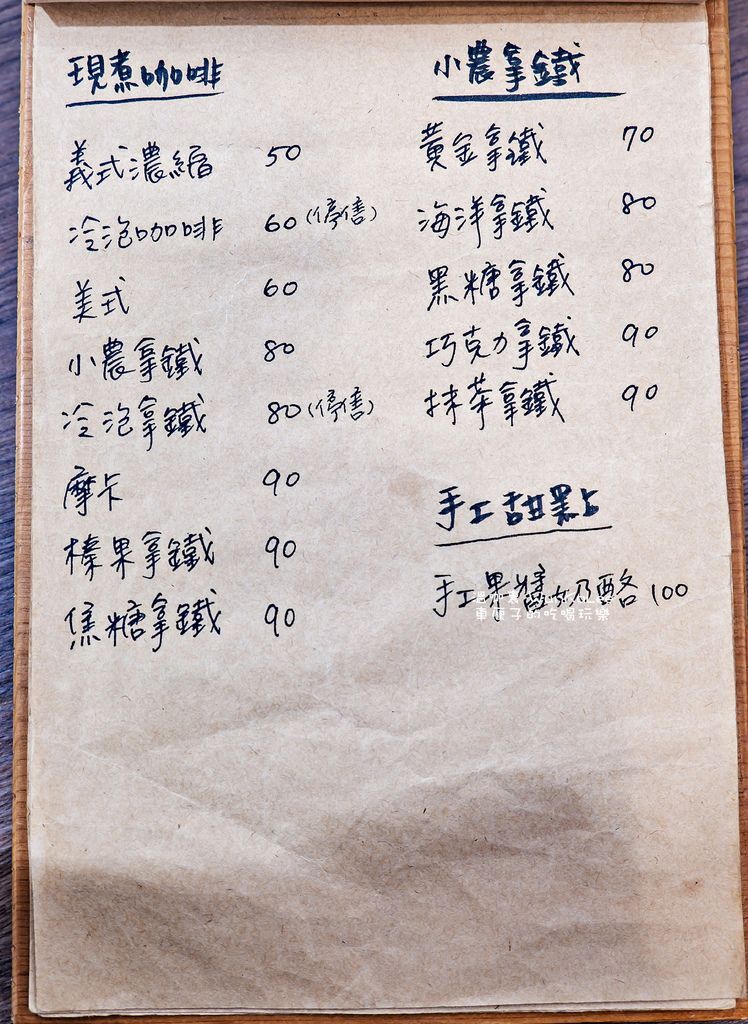 現煮咖啡
義式濃縮 50
冷泡咖啡 60(停售)
美式 60
小農拿鐵 80
冷泡拿鐵 80(停售)
摩卡 90
榛果拿鐵 90
焦糖拿鐵 90
小農拿鐵
黃金拿鐵 70
海洋拿鐵 80
黑糖拿鐵 80
巧克力拿鐵 90
抹茶拿鐵 90
手工甜點
手工果醬奶酪 100
車庫子的吃喝玩樂